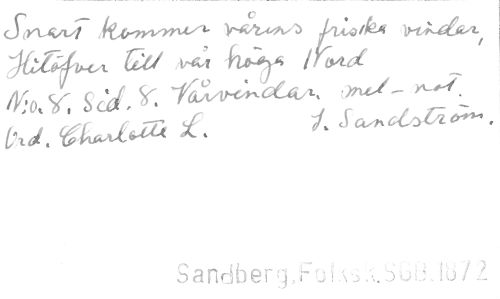 Snart kommer vårens friska vindar,
Hitöfver till vår höga Nord
N:o. 8. Sid. 8. Vårvindar. mel-not.
Ord. Charlotte L. J. Sandström.
Sandberg.Folksk.SGB.1872